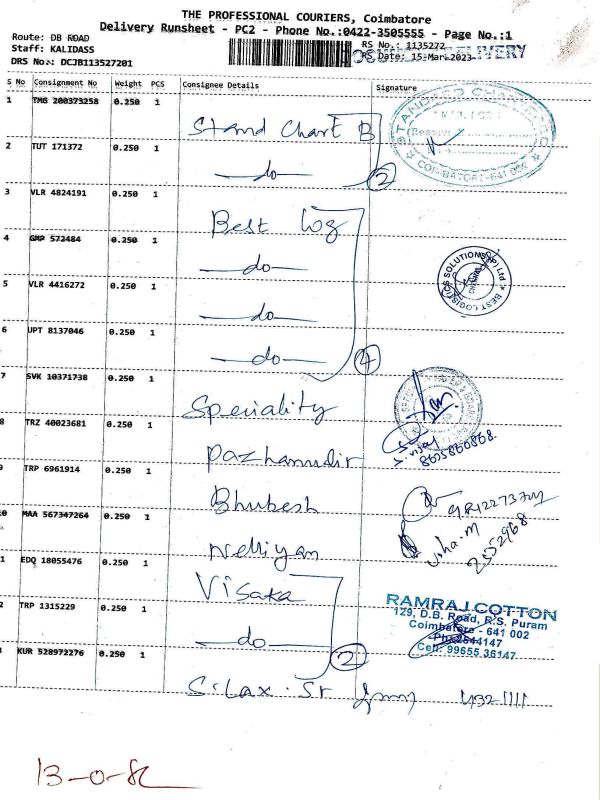 THE PROFESSIONAL COURIERS, Coimbatore
Delivery Runsheet - PC2 - Phone No.:0422-3505555 - Page No.:1
Route: DB ROAD
RS No.: 1135272
DELIVERY
Staff: KALIDASS
RS Date: 15-Mar-2023
DRS No.: DCJB113527201
S No Consignment No Weight PCS Consignee Details Signature
1 TMG 200373258 0.250 1
Stand Chart B
STANDARD CHARTERED
COIMBATORE-641 002
2 TUT 171372 0.250 1
do
2
3 VLR 4824191 0.250 1
Best Log
4 GMP 572484 0.250 1
do
BEST LOGISTICS SOLUTIONS (P) Ltd
5 VLR 4416272 0.250 1
do
6 UPT 8137046 0.250 1
do
4
7 SVK 10371738 0.250 1
Speciality
8 TRZ 40023681 0.250 1
Pazhamudir
9 TRP 6961914 0.250 1
Bhubesh
0 MAA 567347264 0.250 1
Nelliyan
Usha.M
2552968
1 EDQ 18055476 0.250 1
Visaka
2 TRP 1315229 0.250 1
do
2
RAMRAJ COTTON
129, D.B. Road, R.S. Puram
Coimbatore - 641 002
Ph: 2544147
Cell: 99655 36147
3 KUR 528972276 0.250 1
S. Lax. Sr
13-0-82